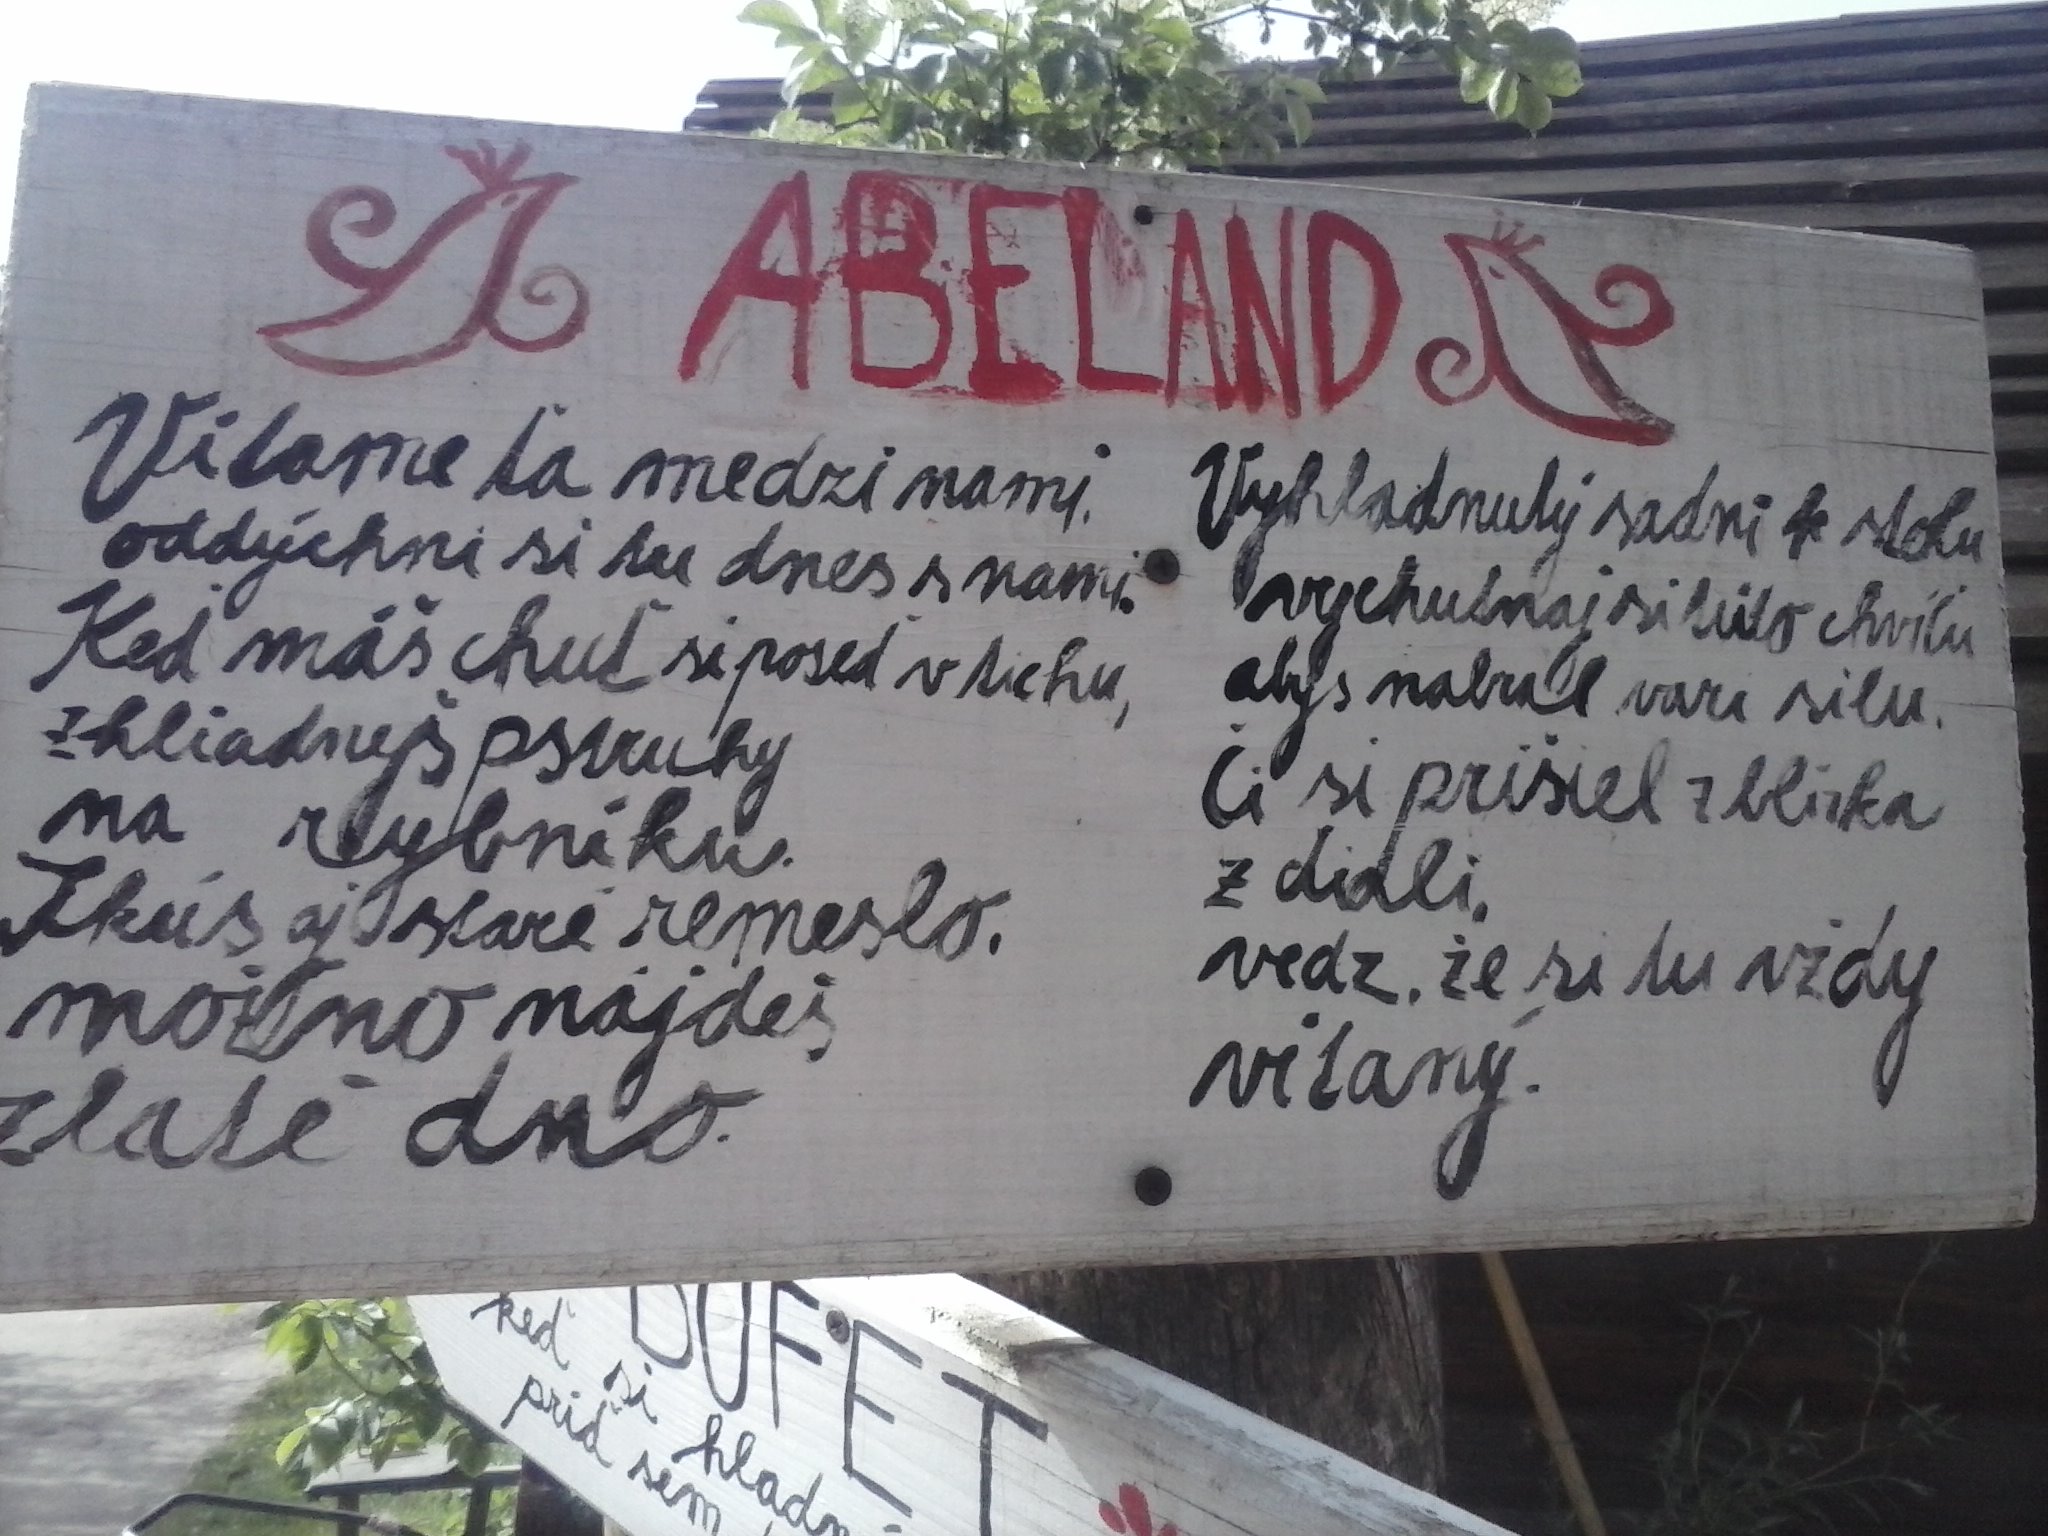 ABELAND
Vítame ťa medzi nami.
oddýchni si tu dnes s nami.
Keď máš chuť si poseď v tichu,
zhliadneš pstruhy
na rybníku.
Zkús aj staré remeslo.
možno nájdeš
zlaté dno.
Vyhladnutý sadni k stolu
vychutnaj si túto chvílu
abys nabral vari silu.
Či si prišiel z blízka
z diali,
vedz, že si tu vždy
vítaný.
BUFET
keď si hladn
príď sem